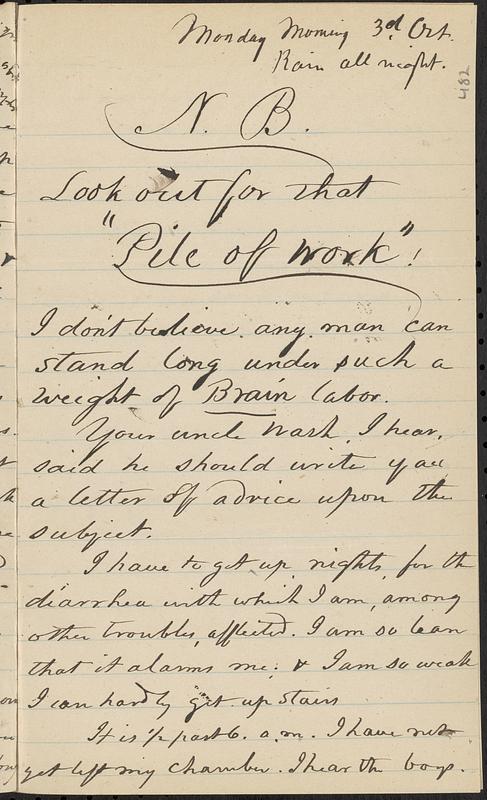 Monday Morning 3d Oct.
Rain all night.
482
N. B.
Look out for that
"Pile of work"!
I don't believe any man can
stand long under such a
weight of Brain labor.
Your uncle Wash, I hear,
said he should write you
a letter of advice upon the
subject.
I have to get up nights for th
diarrhea with which I am, among
other troubles, afflicted. I am so lean
that it alarms me; & I am so weak
I can hardly get up stairs
It is ½ past 6. a.m. I have not
yet left my chamber. I hear the boys.